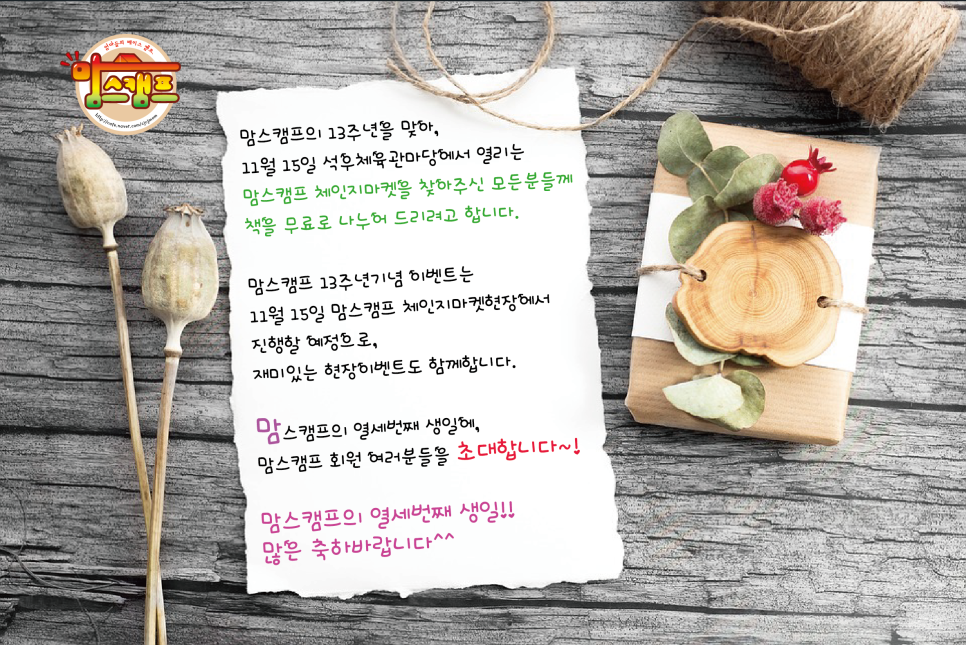 맘스캠프
맘스캠프의 13주년을 맞아,
11월 15일 석우체육관마당에서 열리는
맘스캠프 체인지마켓을 찾아주신 모든분들께
책을 무료로 나누어 드리려고 합니다.
맘스캠프 13주년기념 이벤트는
11월 15일 맘스캠프 체인지마켓현장에서
진행할 예정으로,
재미있는 현장이벤트도 함께합니다.
맘스캠프의 열세번째 생일에,
맘스캠프 회원 여러분들을 초대합니다~!
맘스캠프의 열세번째 생일!!
많은 축하바랍니다^^